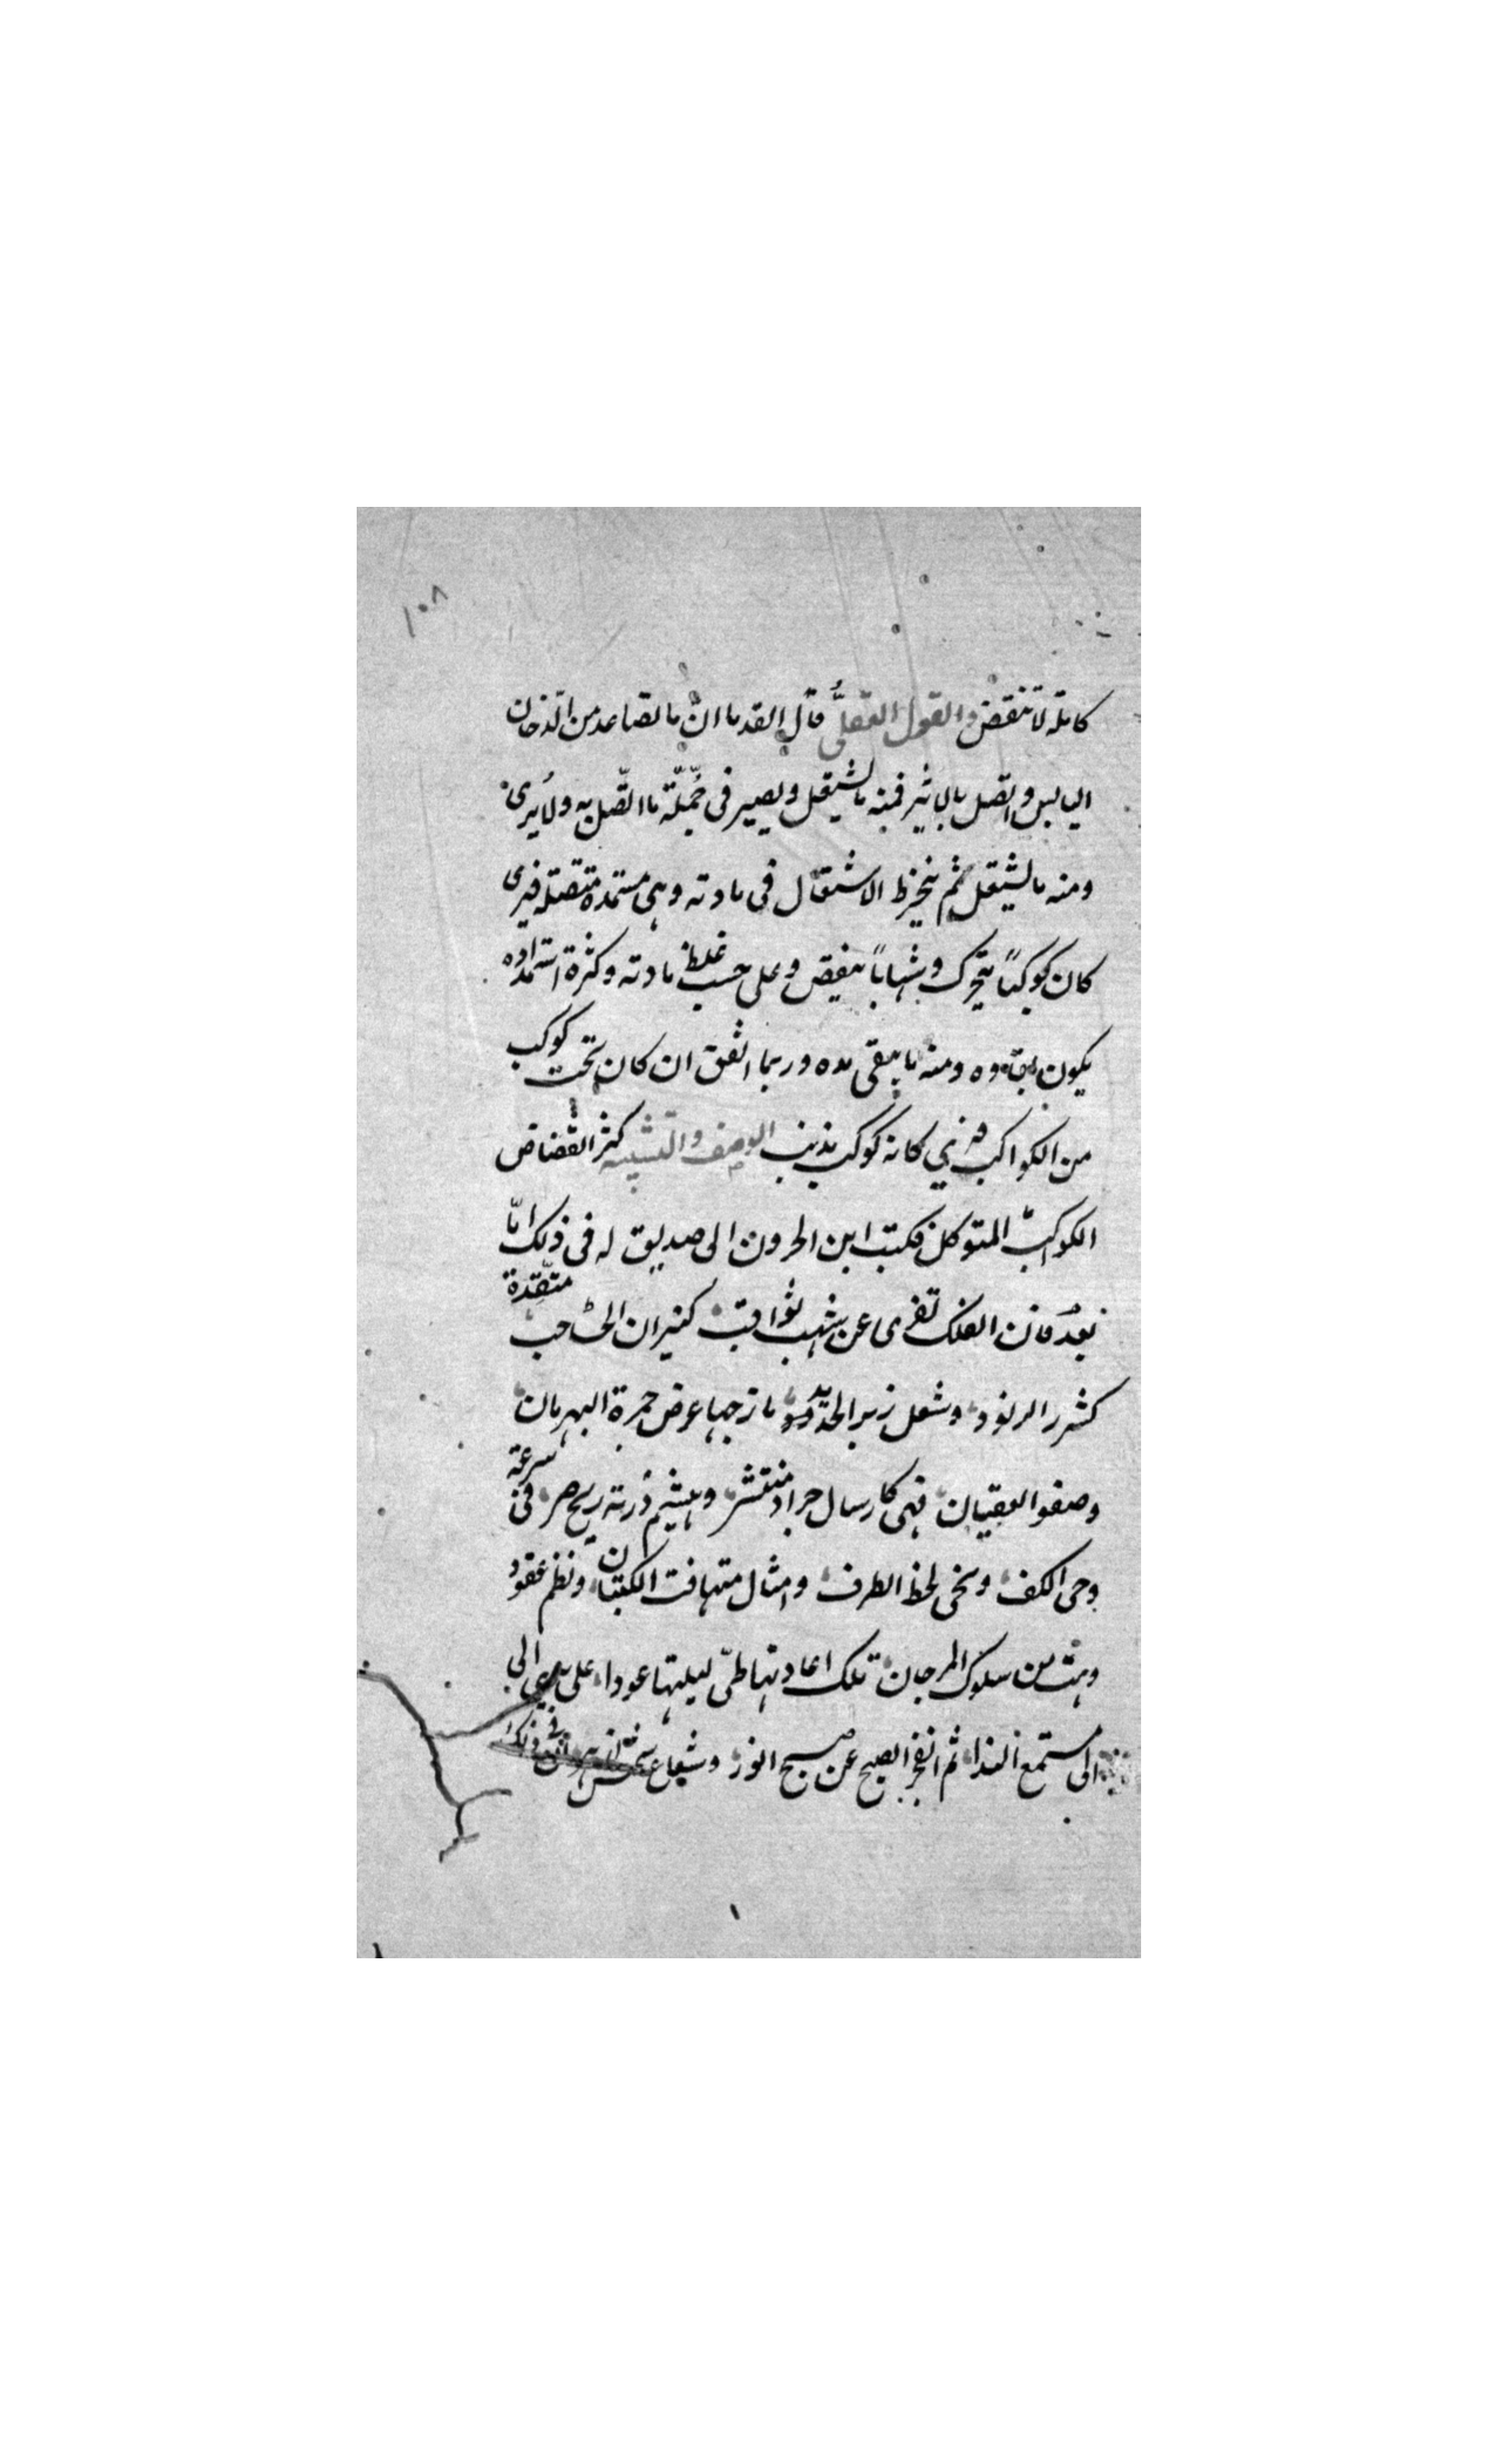 ١٠٨
كاملة لا تنقض والقول العقلى قال القدما ان ما تصاعد من الدخان
اليابس واتصل بالاثير فمنه ما يشتعل ويصير فى جملة ما اتصل به ولا يرى
ومنه ما يشتعل ثم الاشتعال فى مادته وهى مستمدة متصلة فيرى
كان كوكبا يتحرك وشهابا ينقض وعلى حسب غلظ مادته وكثرة استمداده
يكون بقاوه ومنه ما يبقى مده وربما اتفق ان كان تحت كوكب
من الكواكب فيرى كانه كوكب بذنب الوصف والتشبيه كثر انقضاض
الكواكب المتوكل فكتب ابن الحرون الى صديق له فى ذلك امّا
بعدُ فان الفلك تفرى عن شهب ثواقب كنيران الحباحب متّقدة
كشرر الزنود وشعل زبر الحديد مازجها عرض حمرة البهرمان
وصفو العقيان فهى كارسال جراد منتشر وهشيم ذرته ريح صر فى سرعة
وحى الكف لحظ الطرف وامثال متهافت الكتان ونظم عقود
وهت من سلوك المرجان تلك اعادتها طىّ ليلتها عودا على
الى مستمع النداء ثم انفجر الصبح عن صبح النور وشعاع شمس